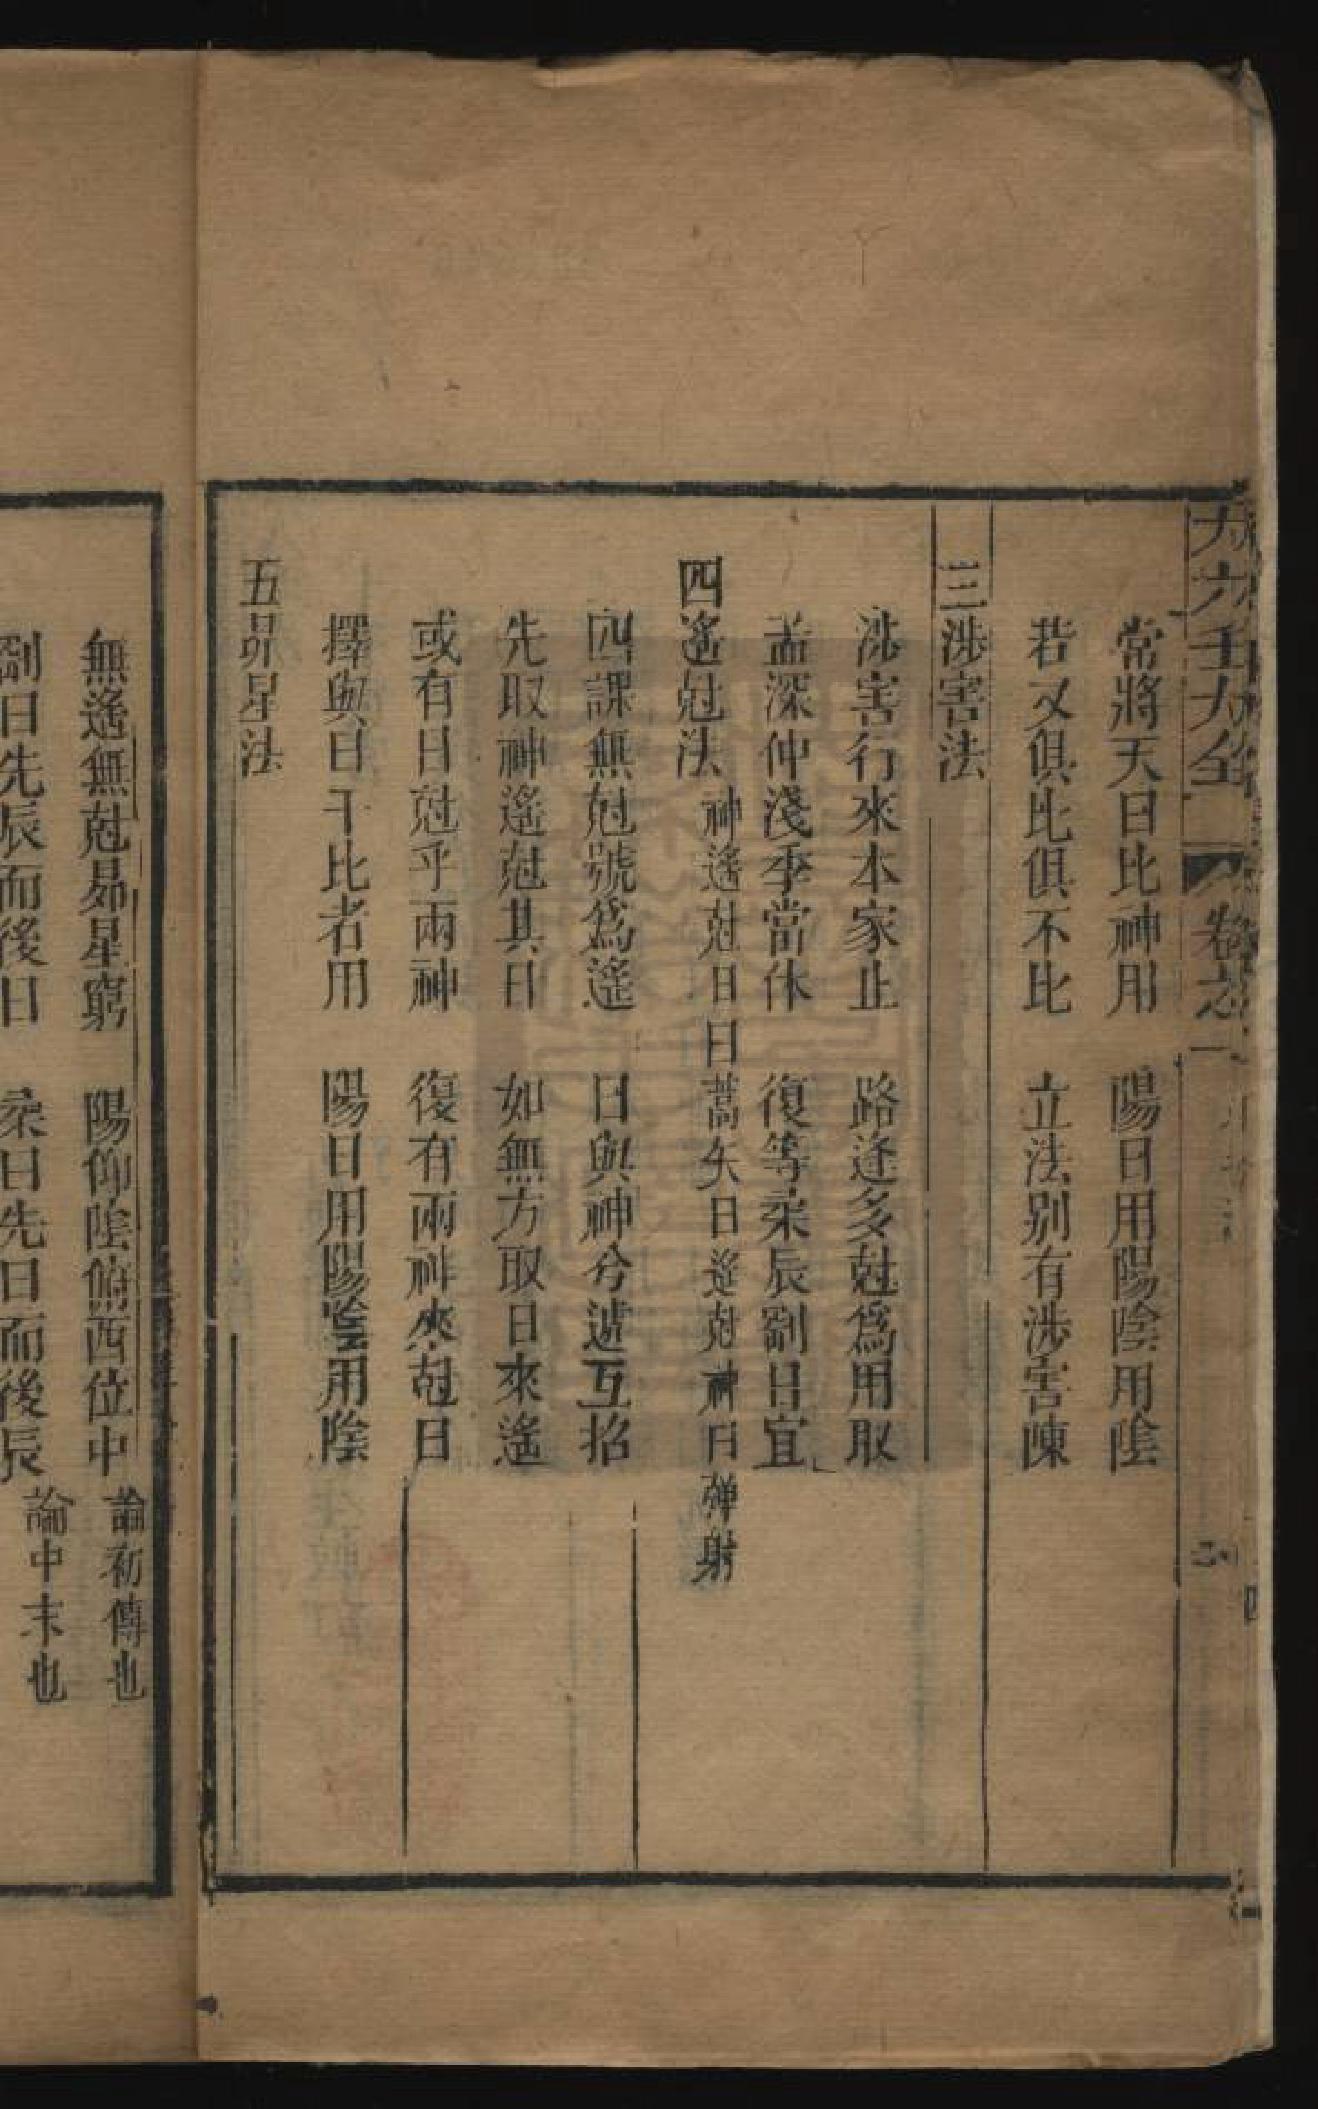 大六壬大全 卷之一
常將天日比神用 陽日用陽陰用陰
若又俱比俱不比 立法別有涉害陳
三涉害法
涉害行來本家止 路逢多尅爲用取
孟深仲淺季當休 復等柔辰剛日宜
四遙尅法 神遙尅日曰蒿矢日遙尅神曰彈射
四課無尅號爲遙 日與神兮遞互招
先取神遙尅其日 如無方取日來遙
或有日尅乎兩神 復有兩神來尅日
擇與日干比者用 陽日用陽陰用陰
五昴星法
無遙無尅昴星窮 陽仰陰俯酉位中 論初傳也
剛日先辰而後日 柔日先日而後辰 論中末也